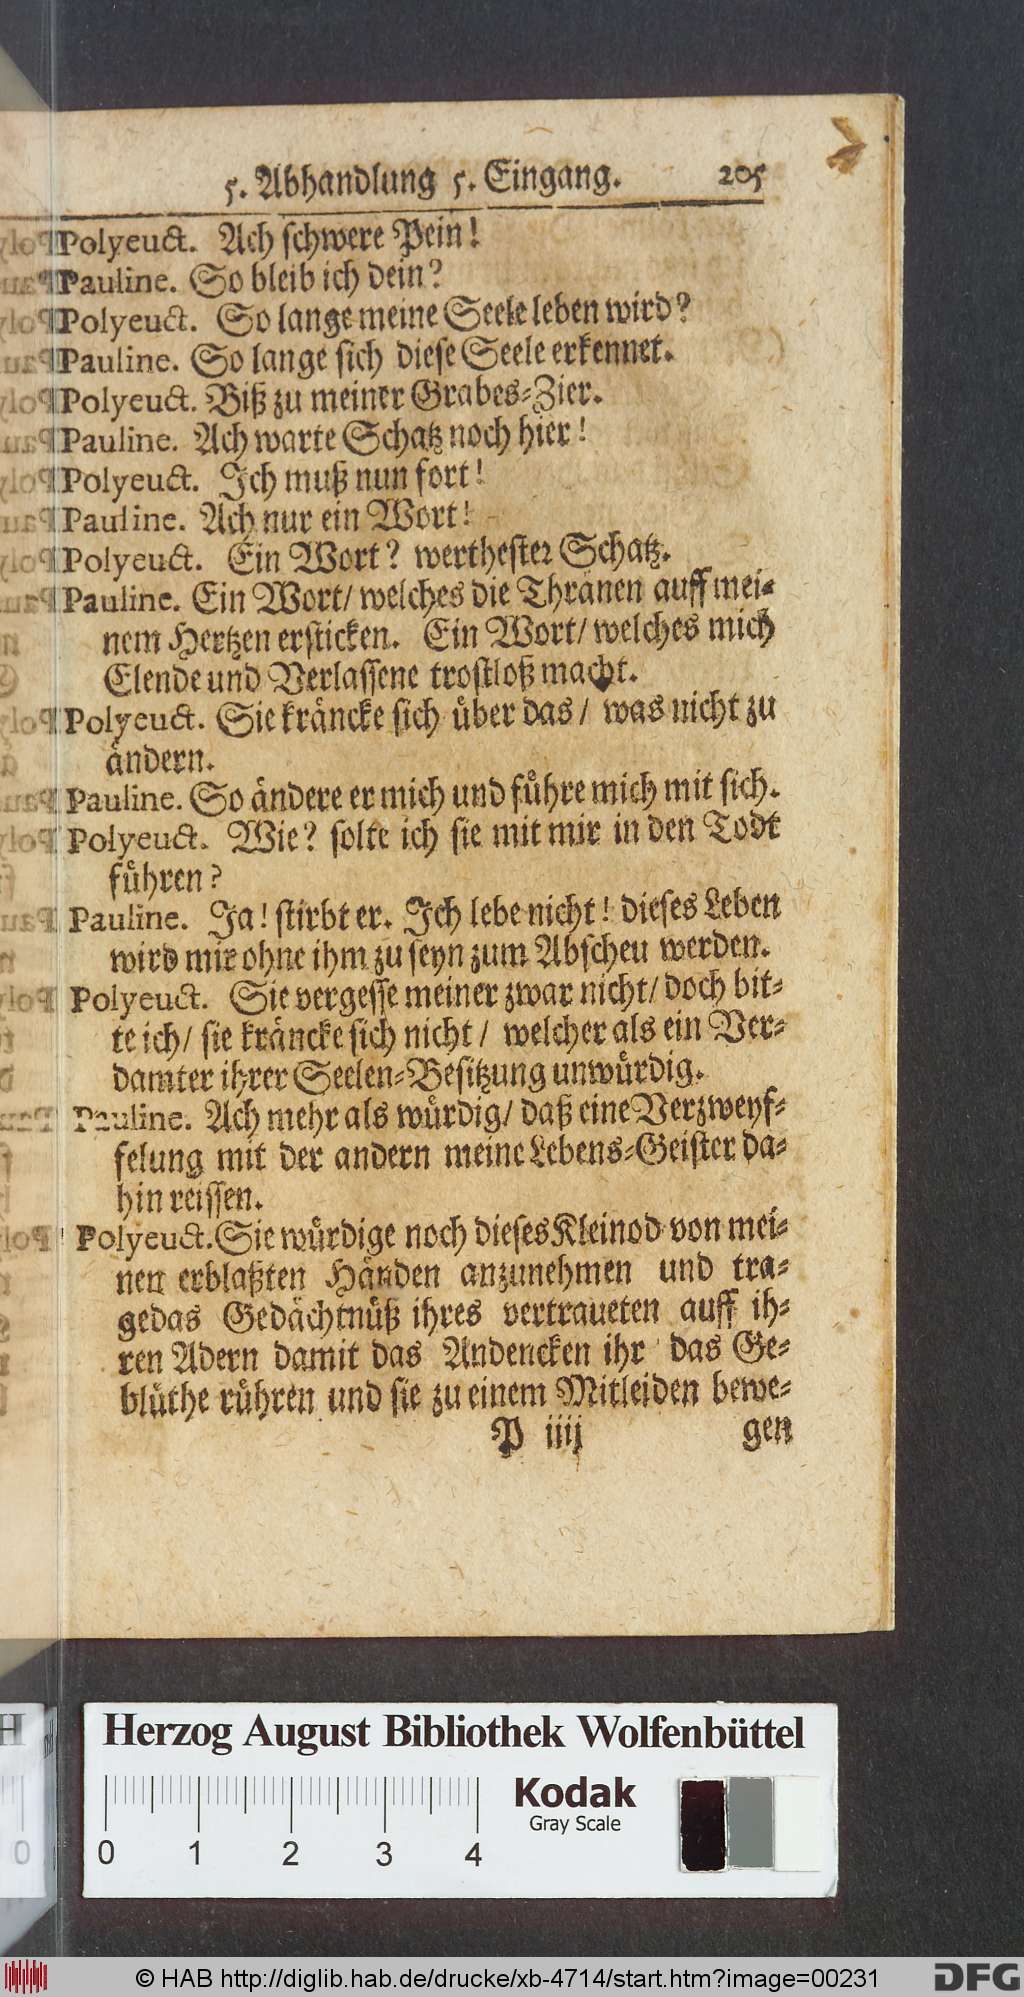 5. Abhandlung 5. Eingang. 205
Polyeuct. Ach schwere Pein!
Pauline. So bleib ich dein?
Polyeuct. So lange meine Seele leben wird?
Pauline. So lange sich diese Seele erkennet.
Polyeuct. Biß zu meiner Grabes-Zier.
Pauline. Ach warte Schatz noch hier!
Polyeuct. Ich muß nun fort!
Pauline. Ach nur ein Wort!
Polyeuct. Ein Wort? werthester Schatz.
Pauline. Ein Wort/ welches die Thränen auff mei-
nem Hertzen ersticken. Ein Wort/ welches mich
Elende und Verlassene trostloß macht.
Polyeuct. Sie kräncke sich über das/ was nicht zu
ändern.
Pauline. So ändere er mich und führe mich mit sich.
Polyeuct. Wie? solte ich sie mit mir in den Todt
führen?
Pauline. Ja! stirbt er. Ich lebe nicht! dieses Leben
wird mir ohne ihm zu seyn zum Abscheu werden.
Polyeuct. Sie vergesse meiner zwar nicht/ doch bit-
te ich/ sie kräncke sich nicht/ welcher als ein Ver-
damter ihrer Seelen-Besitzung unwürdig.
Pauline. Ach mehr als würdig/ daß eine Verzweyf-
felung mit der andern meine Lebens-Geister da-
hin reissen.
Polyeuct. Sie würdige noch dieses Kleinod von mei-
nen erblaßten Händen anzunehmen und tra-
ge das Gedächtnüß ihres vertraueten auff ih-
ren Adern damit das Andencken ihr das Ge-
blüthe rühren und sie zu einem Mitleiden bewe-
P iiij gen
Herzog August Bibliothek Wolfenbüttel
Kodak
Gray Scale
0 1 2 3 4
© HAB http://diglib.hab.de/drucke/xb-4714/start.htm?image=00231
DFG